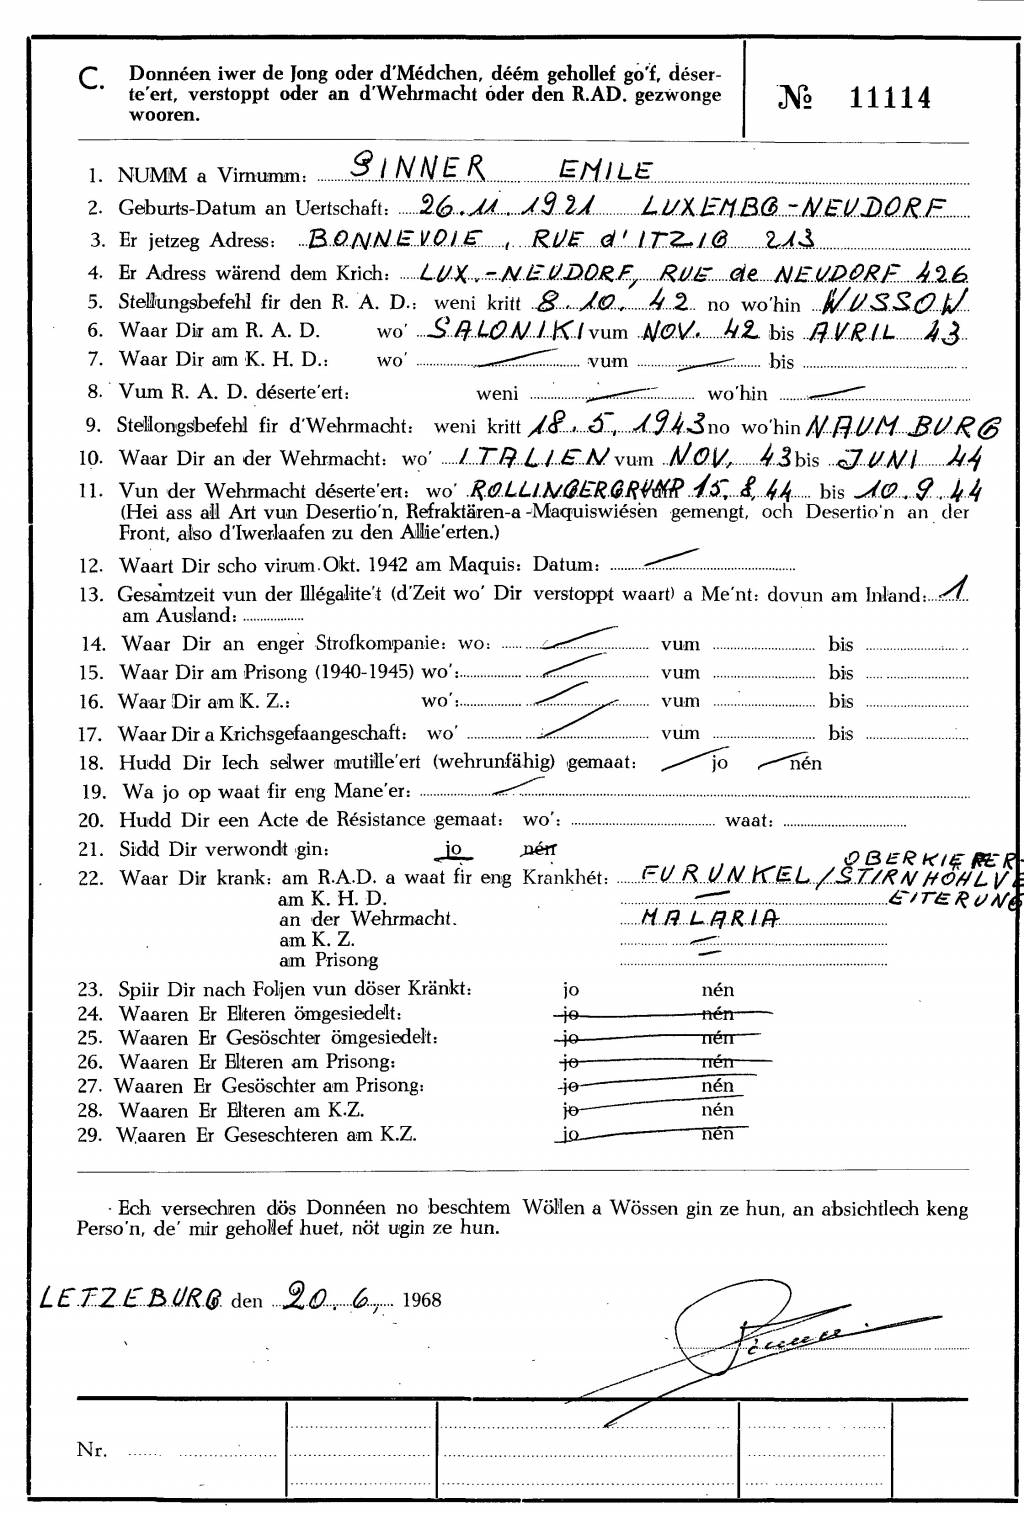 C. Donnéen iwer de Jong oder d'Médchen, déém gehollef go'f, déser-
te'ert, verstoppt oder an d'Wehrmacht oder den R.AD. gezwonge
wooren.
№ 11114
1. NUMM a Virnumm: SINNER EMILE
2. Geburts-Datum an Uertschaft: 26.11.1921 LUXEMBG-NEUDORF
3. Er jetzeg Adress: BONNEVOIE, RUE d'ITZIG 213
4. Er Adress wärend dem Krich: LUX.-NEUDORF, RUE de NEUDORF 426
5. Stellungsbefehl fir den R. A. D.: weni kritt 8.10.42 no wo'hin WUSSOW
6. Waar Dir am R. A. D. wo' SALONIKI vum NOV. 42 bis AVRIL 43
7. Waar Dir am K. H. D.: wo' vum bis
8. Vum R. A. D. déserte'ert: weni wo'hin
9. Stellongsbefehl fir d'Wehrmacht: weni kritt 18.5.1943 no wo'hin NAUMBURG
10. Waar Dir an der Wehrmacht: wo' ITALIEN vum NOV. 43 bis JUNI 44
11. Vun der Wehrmacht déserte'ert: wo' ROLLINGERGRUND 15.8.44 bis 10.9.44
(Hei ass all Art vun Desertio'n, Refraktären-a -Maquiswiésen gemengt, och Desertio'n an der
Front, also d'Iwerlaafen zu den Allie'erten.)
12. Waart Dir scho virum Okt. 1942 am Maquis: Datum:
13. Gesamtzeit vun der Illégalite't (d'Zeit wo' Dir verstoppt waart) a Me'nt: dovun am Inland: 1
am Ausland:
14. Waar Dir an enger Strofkompanie: wo: vum bis
15. Waar Dir am Prisong (1940-1945) wo': vum bis
16. Waar Dir am K. Z.: wo': vum bis
17. Waar Dir a Krichsgefaangeschaft: wo' vum bis
18. Hudd Dir Iech selwer mutille'ert (wehrunfähig) gemaat: jo nén
19. Wa jo op waat fir eng Mane'er:
20. Hudd Dir een Acte de Résistance gemaat: wo': waat:
21. Sidd Dir verwondt gin: jo nén
22. Waar Dir krank: am R.A.D. a waat fir eng Krankhét: FURUNKEL/ OBERKIEFER-
STIRNHÖHLVE
am K. H. D. EITERUNG
an der Wehrmacht. MALARIA
am K. Z.
am Prisong
23. Spiir Dir nach Foljen vun döser Kränkt: jo nén
24. Waaren Er Elteren ömgesiedelt: jo nén
25. Waaren Er Gesöschter ömgesiedelt: jo nén
26. Waaren Er Elteren am Prisong: jo nén
27. Waaren Er Gesöschter am Prisong: jo nén
28. Waaren Er Elteren am K.Z. jo nén
29. Waaren Er Geseschteren am K.Z. jo nén
Ech versechren dös Donnéen no beschtem Wöllen a Wössen gin ze hun, an absichtlech keng
Perso'n, de' mir gehollef huet, nöt ugin ze hun.
LETZEBURG den 20.6. 1968
Nr.